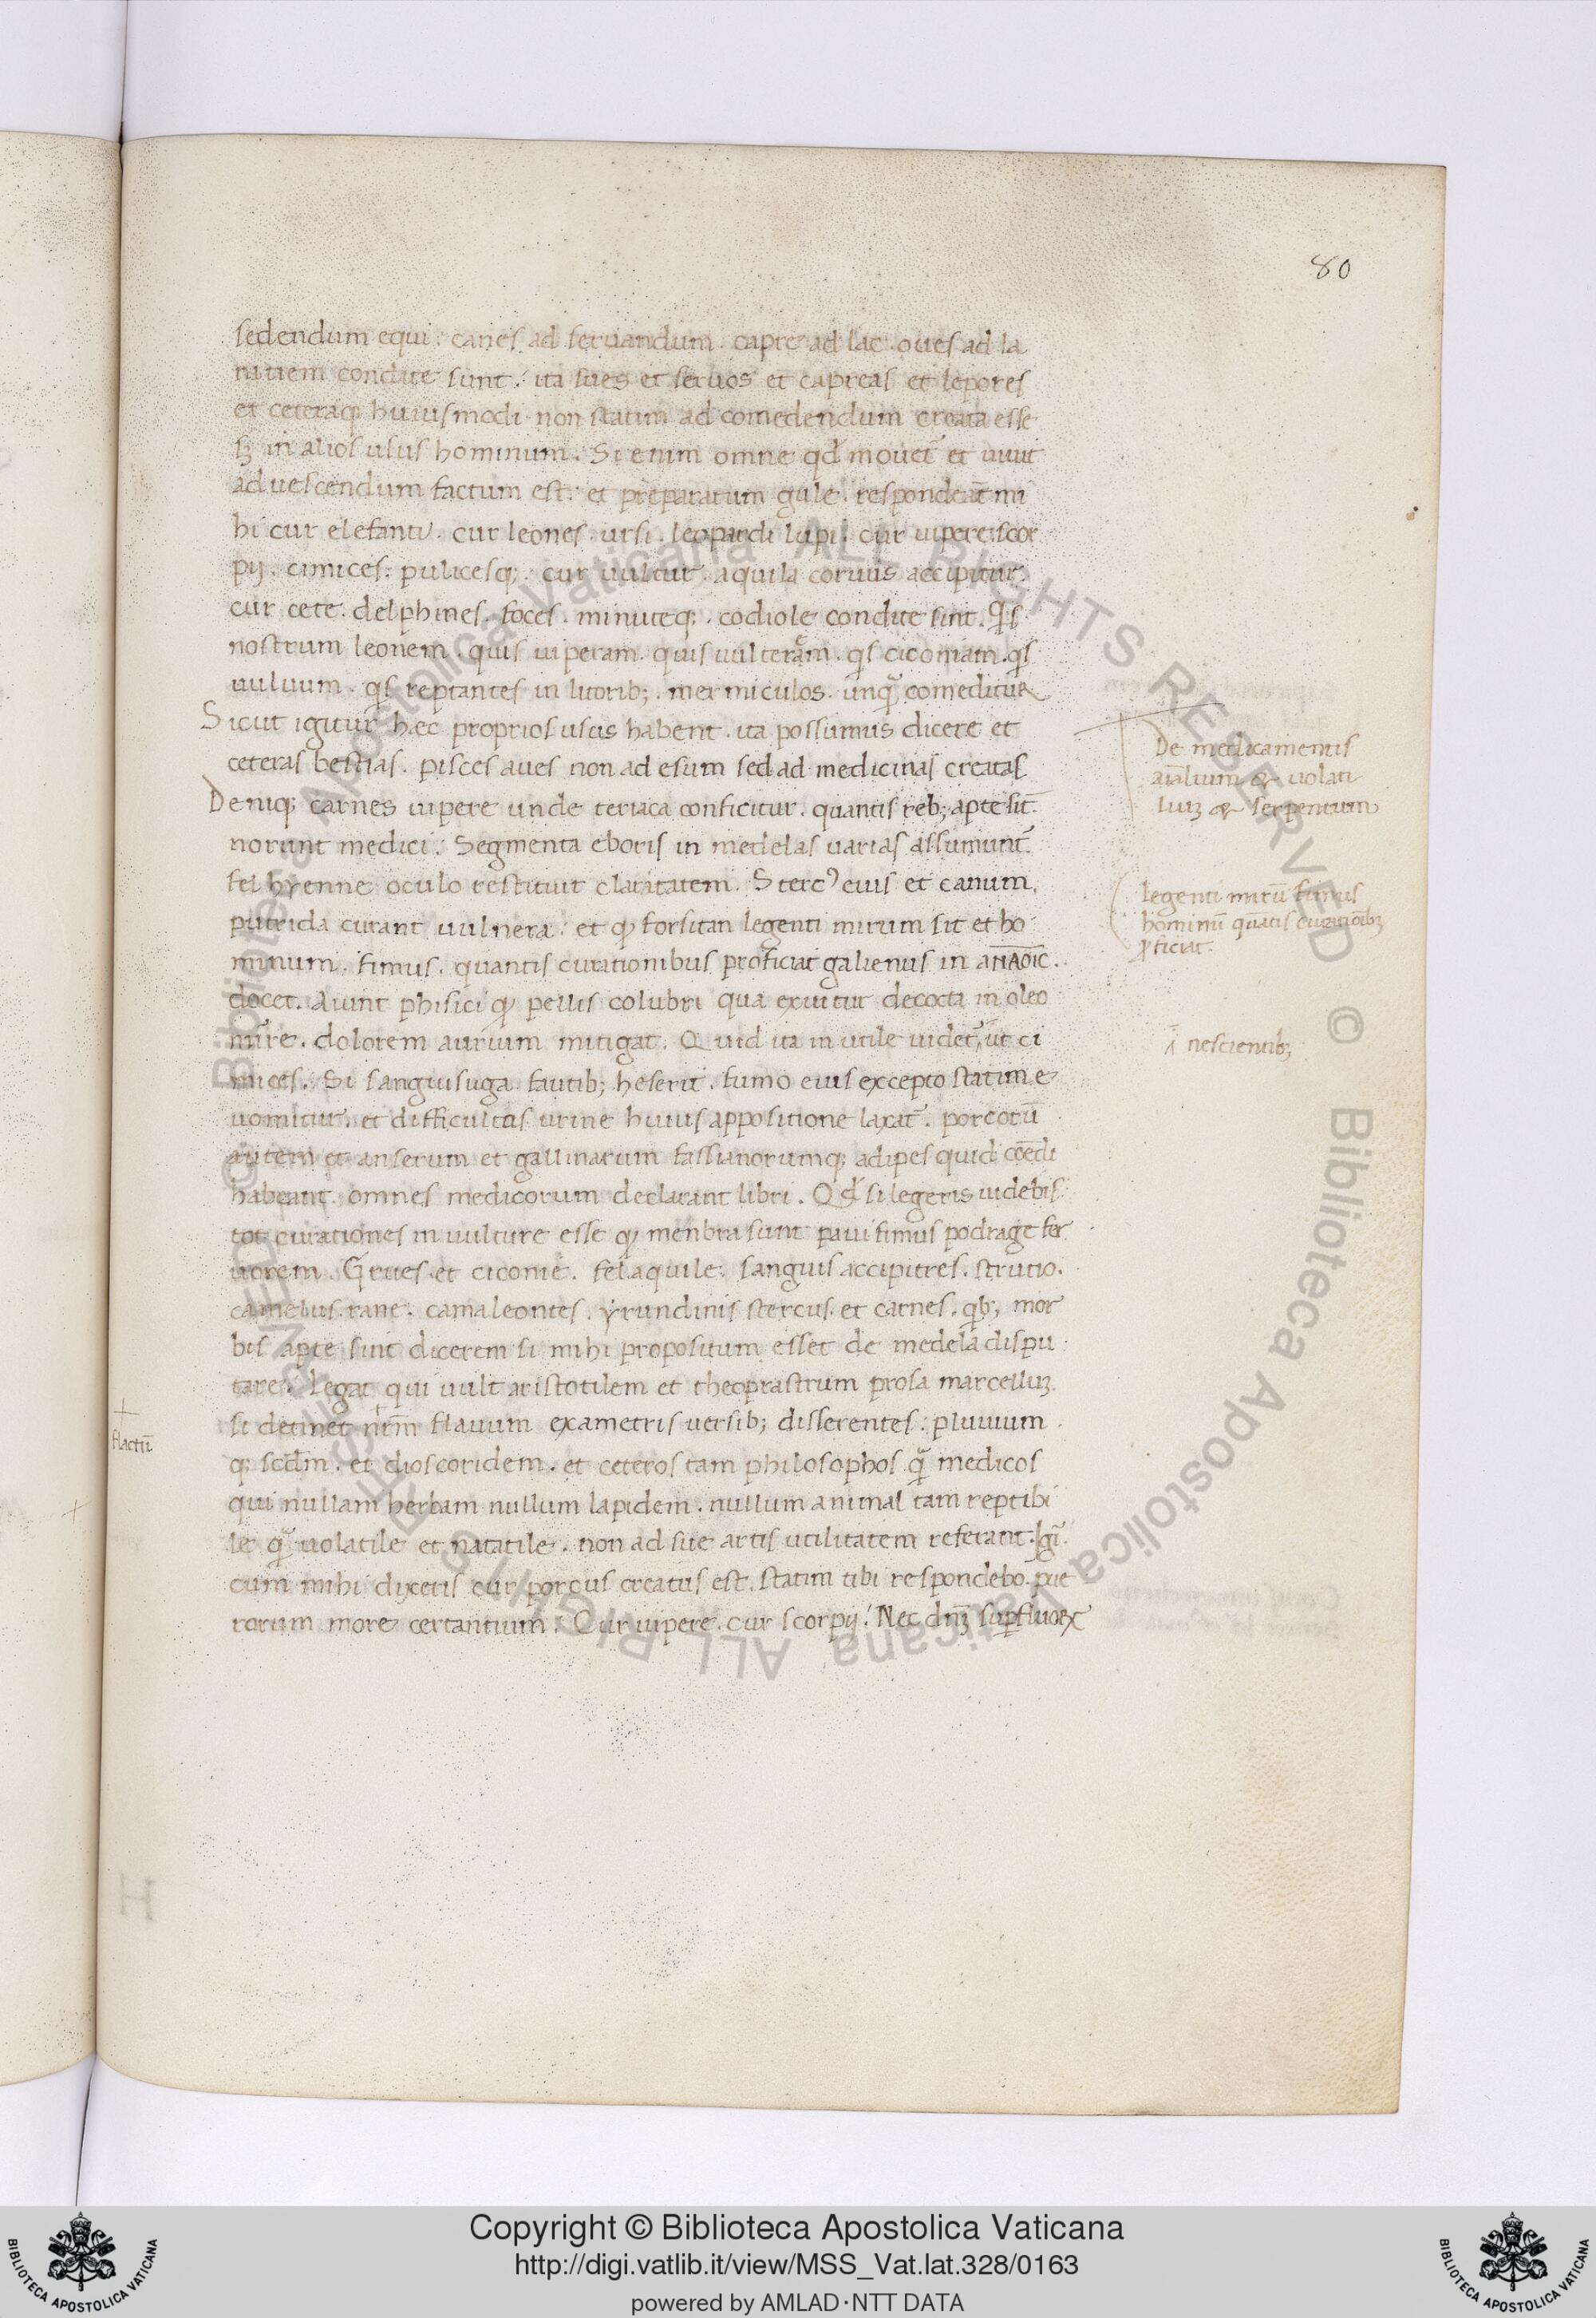 80
sedendum equi. canes ad seruandum. capre ad lac. oues ad la
nitiem condite sunt. ita sues et seruos et capreas et lepores
et ceteraq; huiusmodi non statim ad comedendum creata esse
sꝫ in alios usus hominum. Si enim omne qđ mouet̄ et uiuit
ad uescendum factum est. et preparatum gule. respondeāt mi
hi cur elefanti. cur leones. ursi. leopardi lupi. cur uipere. scor
pij. cimices. pulicesq;. cur uultur. aquila coruus accipitur.
cur cete. delphines. foces. minuteq;. codiole condite sint. Qͥs
nostrum leonem. quis uiperam. quis uulterem. qͥs ciconiam. qͥs
uuluum. qͥs reptantes in litorib;. mermiculos. unqͣ comeditur
Sicut igitur hæc proprios usus habent. ita possumus dicere et
ceteras bestias. pisces aues non ad esum sed ad medicinas creatas
Deniq; carnes uipere unde teriaca conficitur. quantis reb; apte sit̄
norunt medici. Segmenta eboris in medelas uarias assumunt̄.
fel hyenne oculo restituit claritatem. Sterc᾽ eius et canum.
putrida curant uulnera. et qꝫ forsitan legenti mirum sit et ho
minum. fimus. quantis curationibus proficiat galienus in aΠΛOIC.
docet. Aiunt phisici qꝫ pellis colubri qua exuitur decocta in oleo
mire. dolorem aurium mitigat. Quid ita inutile uidet̄, ut ci
mices. Si sanguisuga faucib; heserit. fumo eius excepto statim e
uomitur. et difficultas urine huius appositione laxat̄. porcorū
autem et anserum et gallinarum fassianorumq; adipes quid cōedi
habeant. omnes medicorum declarant libri. Qđ si legeris uidebis
tot curationes in uulture esse qꝫ menbra sunt paui fimus podrage fer
uorem. Grues et ciconie. fel aquile. sanguis accipitres. strutio.
camelus. rane. camaleontes. yrundinis stercus. et carnes. qͥb; mor
bis apte sint dicerem si mihi propositum esset de medela dispu
tare. Legat qui uult aristotilem et theoprastrum prosa marcelluꝫ
si detinet nr̄m flauum exametris uersib; disserentes. pluuium
q; scđm. et dioscoridem. et ceteros tam philosophos qͣ medicos
qui nullam herbam nullum lapidem. nullum animal tam reptibi
le qͣ uolatile et natatile. non ad sue artis utilitatem referant. Igī
cum mihi dixeris cur porcus creatus est. statim tibi respondebo. pue
rorum more certantium. Cur uipere. cur scorpij. Nec dnꝫ supfluorꝝ
De medicamentis
aīalium & uolati
liuꝫ & serpentum
legenti mirū fimus
hominū quātis curatiōibꝫ
ꝓficiat.
nescientib;
flactū
Copyright © Biblioteca Apostolica Vaticana
http://digi.vatlib.it/view/MSS_Vat.lat.328/0163
powered by AMLAD·NTT DATA
BIBLIOTECA APOSTOLICA VATICANA
BIBLIOTECA APOSTOLICA VATICANA